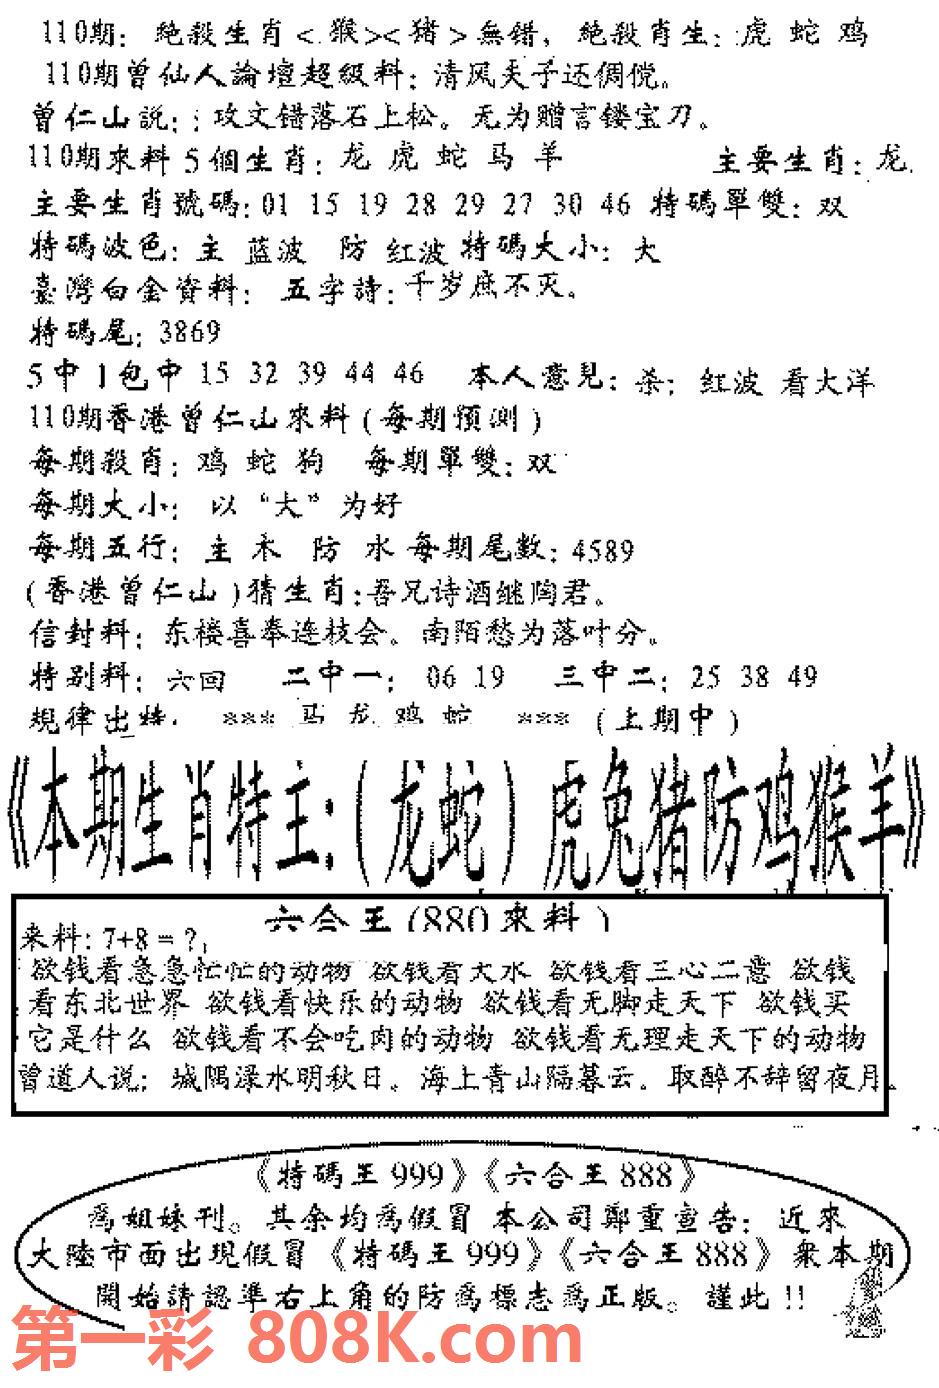 110期: 絶殺生肖<猴><猪>無错, 絶殺肖生: 虎 蛇 鸡
110期曾仙人論壇超級料: 清风天子还倜傥。
曾仁山説: : 攻文错落石上松。无为赠言镂宝刀。
110期來料 5個生肖: 龙 虎 蛇 马 羊 主要生肖: 龙.
主要生肖號碼: 01 15 19 28 29 27 30 46 特碼單雙: 双
特碼波色: 主 蓝波 防 红波 特碼大小: 大
臺灣白金資料: 五字詩: 千岁庶不灭。
特碼尾: 3869
5中1包中 15 32 39 44 46 本人意見: 杀: 红波 看大洋
110期香港曾仁山來料(每期預測)
每期殺肖: 鸡 蛇 狗 每期單雙: 双
每期大小: 以“大”为好
每期五行: 主 木 防 水 每期尾數: 4589
(香港曾仁山)猜生肖: 吾兄诗酒继陶君。
信封料: 东楼喜奉连枝会。南陌愁为落叶分。
特别料: 六回 二中一: 06 19 三中二: 25 38 49
規律出特: *** 马 龙 鸡 蛇 *** (上期中)
《本期生肖特主:(龙蛇)虎兔猪防鸡猴羊》
六合王(880來料)
来料: 7+8=?
欲钱看急急忙忙的动物 欲钱看大水 欲钱看三心二意 欲钱
看东北世界 欲钱看快乐的动物 欲钱看无脚走天下 欲钱买
它是什么 欲钱看不会吃肉的动物 欲钱看无理走天下的动物
曾道人说: 城隅渌水明秋日。海上青山隔暮云。取醉不辞留夜月.
《特碼王999》《六合王888》
爲姐妹刊。其余均爲假冒 本公司鄭重宣告: 近來
大陸市面出現假冒《特碼王999》《六合王888》衆本期
開始請認準右上角的防爲標志爲正版。謹此!!
第一彩 808K.com